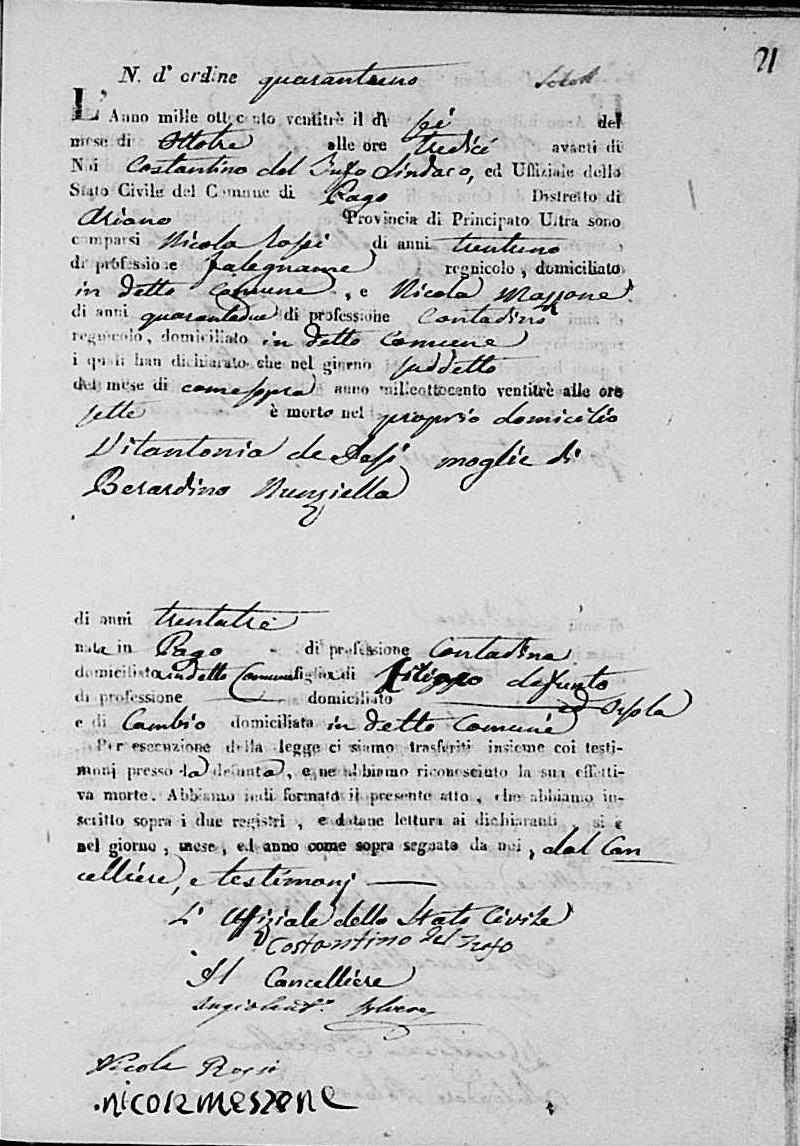 21
N. d' ordine quarantuno
L'Anno mille ottocento ventitrè il dì sei del
mese di Ottobre alle ore tredici avanti di
Noi Costantino del Sindaco, ed Uffiziale dello
Stato Civile del Comune di Pago Distretto di
Ariano Provincia di Principato Ultra sono
comparsi Nicola Rossi di anni trentuno
di professione falegname regnicolo, domiciliato
in detto Comune, e Nicola Mazzone
di anni quarantadue di professione Contadino
regnicolo, domiciliato in detto Comune
i quali han dichiarato che nel giorno suddetto
del mese di come sopra anno mille ottocento ventitrè alle ore
sette è morto nel proprio domicilio
Vitantonia de moglie di
Berardino Nunziella
di anni trentatrè
nata in Pago di professione Contadina
domiciliata in detto Comune figlia di Filippo defunto
di professione domiciliato
e di domiciliata in detto Comune
Per esecuzione della legge ci siamo trasferiti insieme coi testi-
monj presso la defunta, e ne abbiamo riconosciuto la sua effetti-
va morte. Abbiamo indi formato il presente atto, che abbiamo in-
scritto sopra i due registri, e datane lettura ai dichiaranti, si è
nel giorno, mese, ed anno come sopra segnato da noi, dal Can
celliere, e testimonj
L' Uffiziale dello Stato Civile
Costantino del
Il Cancelliere
Nicola Rossi
nicola meszone